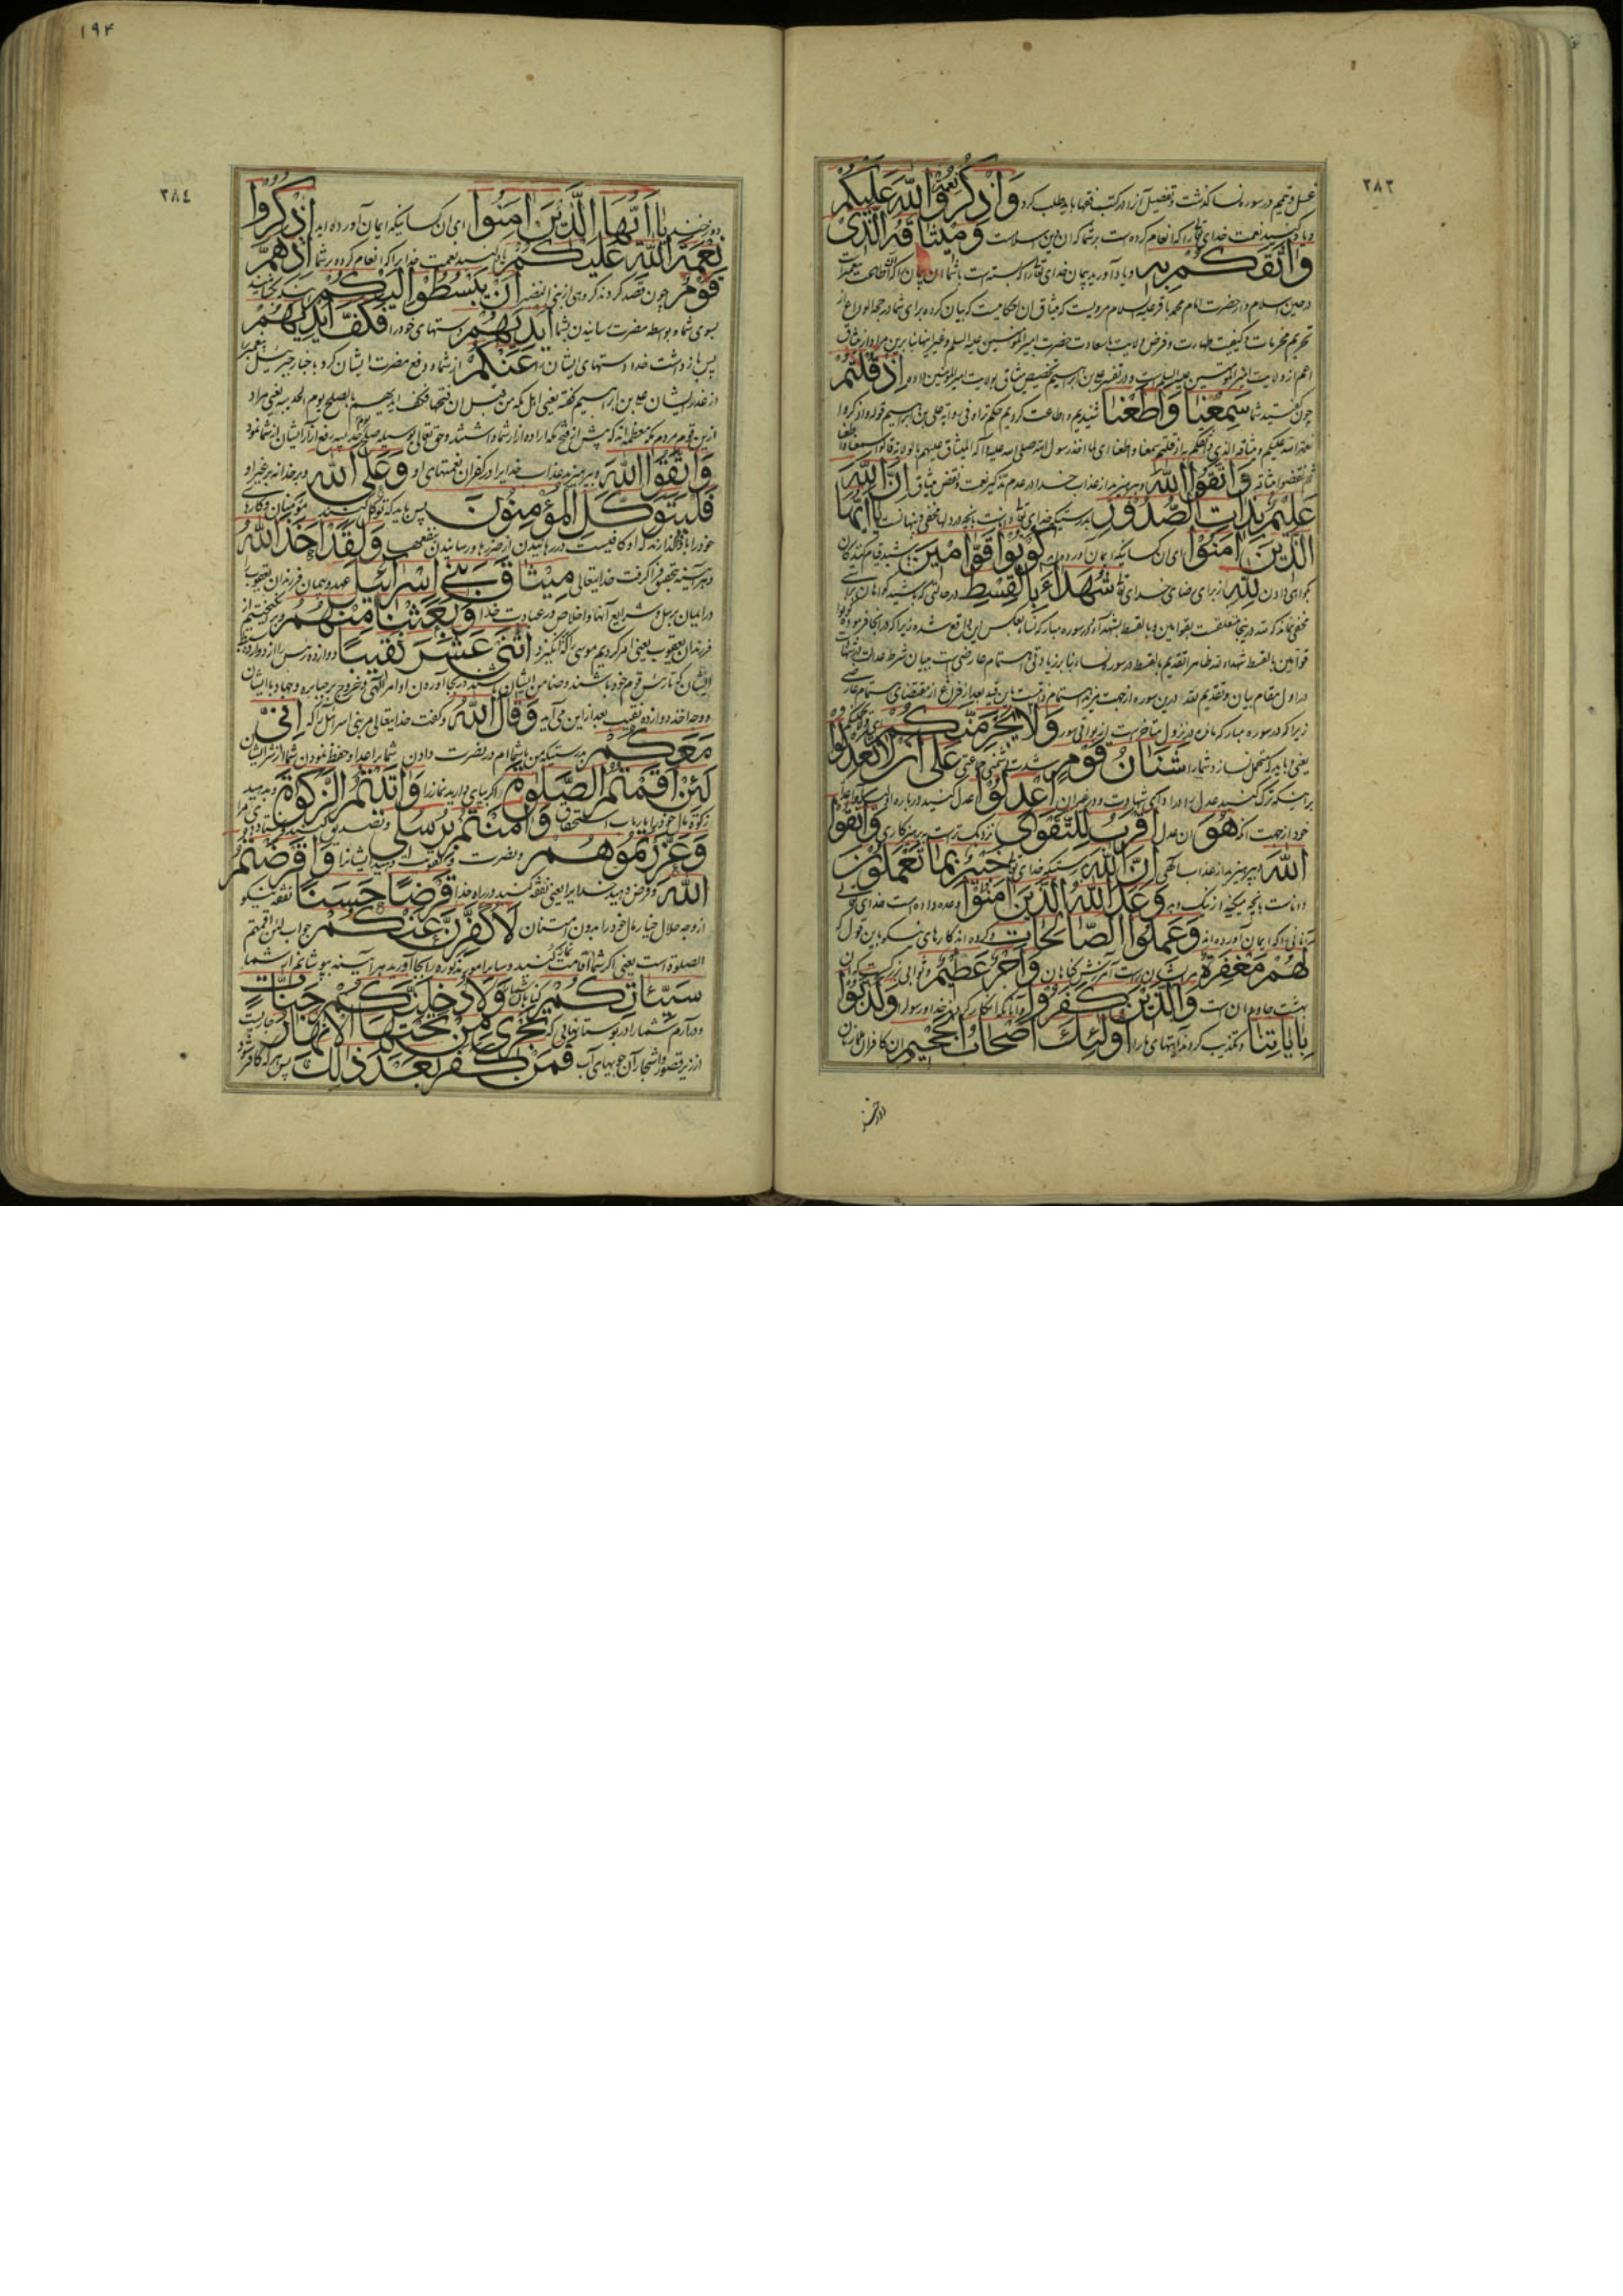 ٢٨٣
غسل و تیمم در سوره نسا گذشت و تفصیل آن را در کتب فقها باید طلب کرد وَاذْكُرُوا نِعْمَةَ اللهِ عَلَيْكُمْ
و یاد کنید نعمت خدای تعالی را که انعام کرده است بر شما که آن دین اسلامست وَمِيثَاقَهُ الَّذِى
وَاثَقَكُمْ بِهِ و یاد آورید پیمان خدای تعالی را که بسته است با شما آن پیمان را که
در حین اسلام و از حضرت امام محمد باقر علیه السلام مرویست که میثاق آن احکامیست که بیان کرده برای شما در حجة الوداع از
تحریم محرمات و کیفیت طهارت و فرض ولایت با سعادت حضرت امیر المؤمنین علیه السلام و غیر اینها بنابرین مراد از میثاق
اعم از ولایت امیر المؤمنین علیه السلام است و در تفسیر علی بن ابراهیم تخصیص میثاق بولایت امیر المؤمنین داده إِذْ قُلْتُمْ
چون گفتید شما سَمِعْنَا وَاَطَعْنَا شنیدیم و اطاعت کردیم حکم ترا و فی روایة علی بن ابراهیم قوله واذکروا
نعمة الله علیکم و میثاقه الذی واثقکم به اذ قلتم سمعنا و اطعنا ای لما اخذ رسول الله صلی الله علیه و آله المیثاق علیهم بالولایة قالوا سمعنا و اطعنا
ثم نقضوا میثاقه وَاتَّقُوا اللهَ و بپرهیزید از عذاب خدا در عدم تذکر نعمت و نقض میثاق اِنَّ اللهَ
عَلِيمٌ بِذَاتِ الصُّدُورِ بدرستیکه خدای تعالی داناست بآنچه در دلها مخفی و پنهانست يَا اَيُّهَا
الَّذِينَ اٰمَنُوا ای آن کسانیکه ایمان آورده اید كُونُوا قَوَّامِينَ باشید قیام کنندگان
لِلّٰهِ از برای رضای خدای تعالی شُهَدَاءَ بِالْقِسْطِ در حالتی که باشید گواهان براستی
مخفی نماند که
قوامین بالقسط شهداء لله ظاهرا تقدیم بالقسط در سوره نساء بنابر زیادتی اهتمام
در اول مقام بیان و تقدیم
زیرا که در سوره مبارکه مائده در نزول متاخر است از بواقی سور وَلَا يَجْرِمَنَّكُمْ
یعنی باید که متحمل نسازد شما را شَنَاٰنُ قَوْمٍ شدت دشمنی جماعتی عَلٰى اَنْ لَا تَعْدِلُوا
بر اینکه ترک کنید عدل را در ادای شهادت و در غیر آن اِعْدِلُوا عدل کنید در باره
خود از جهت آنکه هُوَ آن عدل اَقْرَبُ لِلتَّقْوٰى نزدیکتر است بپرهیزکاری وَاتَّقُوا
اللهَ و بپرهیزید از عذاب الهی اِنَّ اللهَ بدرستیکه خدای تعالی خَبِيرٌ بِمَا تَعْمَلُونَ
داناست بآنچه میکنید از نیک و بد وَعَدَ اللهُ الَّذِينَ اٰمَنُوا وعده داده است خدای تعالی
آنانی را که ایمان آورده اند وَعَمِلُوا الصَّالِحَاتِ و کرده اند کارهای نیکو باین قول که
لَهُمْ مَغْفِرَةٌ مر ایشان راست آمرزش گناهان وَاَجْرٌ عَظِيمٌ و ثوابی بزرگ که آن
بهشت جاودان است وَالَّذِينَ كَفَرُوا و آنانکه انکار کردند خدا و رسول را وَكَذَّبُوا
بِاٰيَاتِنَا و تکذیب کردند آیتهای ما را اُولٰئِكَ اَصْحَابُ الْجَحِيمِ آن کافران ملازمان
دوزخند
١٩۴
٢٨٤
دوزخند يَا اَيُّهَا الَّذِينَ اٰمَنُوا ای آن کسانیکه ایمان آورده اید اذْكُرُوا
نِعْمَةَ اللهِ عَلَيْكُمْ یاد کنید نعمت خدا را که انعام کرده بر شما اِذْ هَمَّ
قَوْمٌ چون قصد کردند گروهی از بنی النضیر اَنْ يَبْسُطُوا اِلَيْكُمْ
بسوی شما و بواسطه مضرت رسانیدن بشما اَيْدِيَهُمْ دستهای خود را فَكَفَّ اَيْدِيَهُمْ
پس بازداشت خدا دستهای ایشان را عَنْكُمْ از شما و دفع مضرت ایشان کرد باخبار جبرئیل پیغمبر را
از غدر ایشان علی بن ابراهیم گفته یعنی اهل مکه من قبل ان فتحها فکف ایدیهم بالصلح یوم الحدیبیه یعنی مراد
ازین قوم مردم مکه معظمه اند که پیش از فتح مکه اراده آزار شما داشتند و حق تعالی بوسیله صلح حدیبیه رفع آزار ایشان از شما نمود
وَاتَّقُوا اللهَ و بپرهیزید عذاب خدا را در کفران نعمتهای او وَعَلَى اللهِ و بر خدا نه بر غیر او
فَلْيَتَوَكَّلِ الْمُؤْمِنُونَ پس باید که توکل کنند مؤمنان و کارهای
خود را باو گذارند که او کافیست در رهانیدن از ضررها و رسانیدن بنفعها وَلَقَدْ اَخَذَ اللهُ
و هر آینه بتحقیق فرا گرفت خدایتعالی مِيثَاقَ بَنِى اِسْرَائِيلَ عهد و پیمان فرزندان یعقوب را
در ایمان برسل و شرایع آنها و اخلاص در عبادت خدا وَبَعَثْنَا مِنْهُمُ و برانگیختیم از
فرزندان یعقوب یعنی امر کردیم موسی را که برانگیزد اثْنَىْ عَشَرَ نَقِيبًا دوازده رئیس را از دوازده سبط
ایشان که تا رئیس قوم خود باشند و ضامن ایشان باشند در بجا آوردن اوامر الهی و خروج بر جبابره و جهاد با ایشان
و وجه اخذ دوازده نقیب بعد ازین می آید وَقَالَ اللهُ و گفت خدایتعالی مر بنی اسرائیل را که اِنِّى
مَعَكُمْ بدرستیکه من با شماام در نصرت دادن شما بر اعدا و حفظ نمودن شما از شر ایشان
لَئِنْ اَقَمْتُمُ الصَّلٰوةَ اگر بپای دارید نماز را وَاٰتَيْتُمُ الزَّكٰوةَ و بدهید
زکوة مال خود را بارباب استحقاق وَاٰمَنْتُمْ بِرُسُلِى و تصدیق کنید فرستادهای مرا
وَعَزَّرْتُمُوهُمْ و نصرت و تقویت دهید ایشانرا وَاَقْرَضْتُمُ
اللهَ و قرض دهید خدا را یعنی نفقه کنید در راه خدا قَرْضًا حَسَنًا نفقه نیکو
از وجه حلال خیار مال خود را بدون امتنان لَاُكَفِّرَنَّ عَنْكُمْ جواب لئن اقمتم
الصلوة است یعنی اگر شما اقامت نماز کنید و سایر امور مذکوره را بجا آورید هر آینه بپوشانم از شما
سَيِّئَاتِكُمْ گناهان شما وَلَاُدْخِلَنَّكُمْ جَنَّاتٍ
و در آرم شما را در بوستانهایی که تَجْرِى مِنْ تَحْتِهَا الْاَنْهَارُ جاریست
از زیر قصور و اشجار آن جویهای آب فَمَنْ كَفَرَ بَعْدَ ذٰلِكَ پس هر که کافر شود